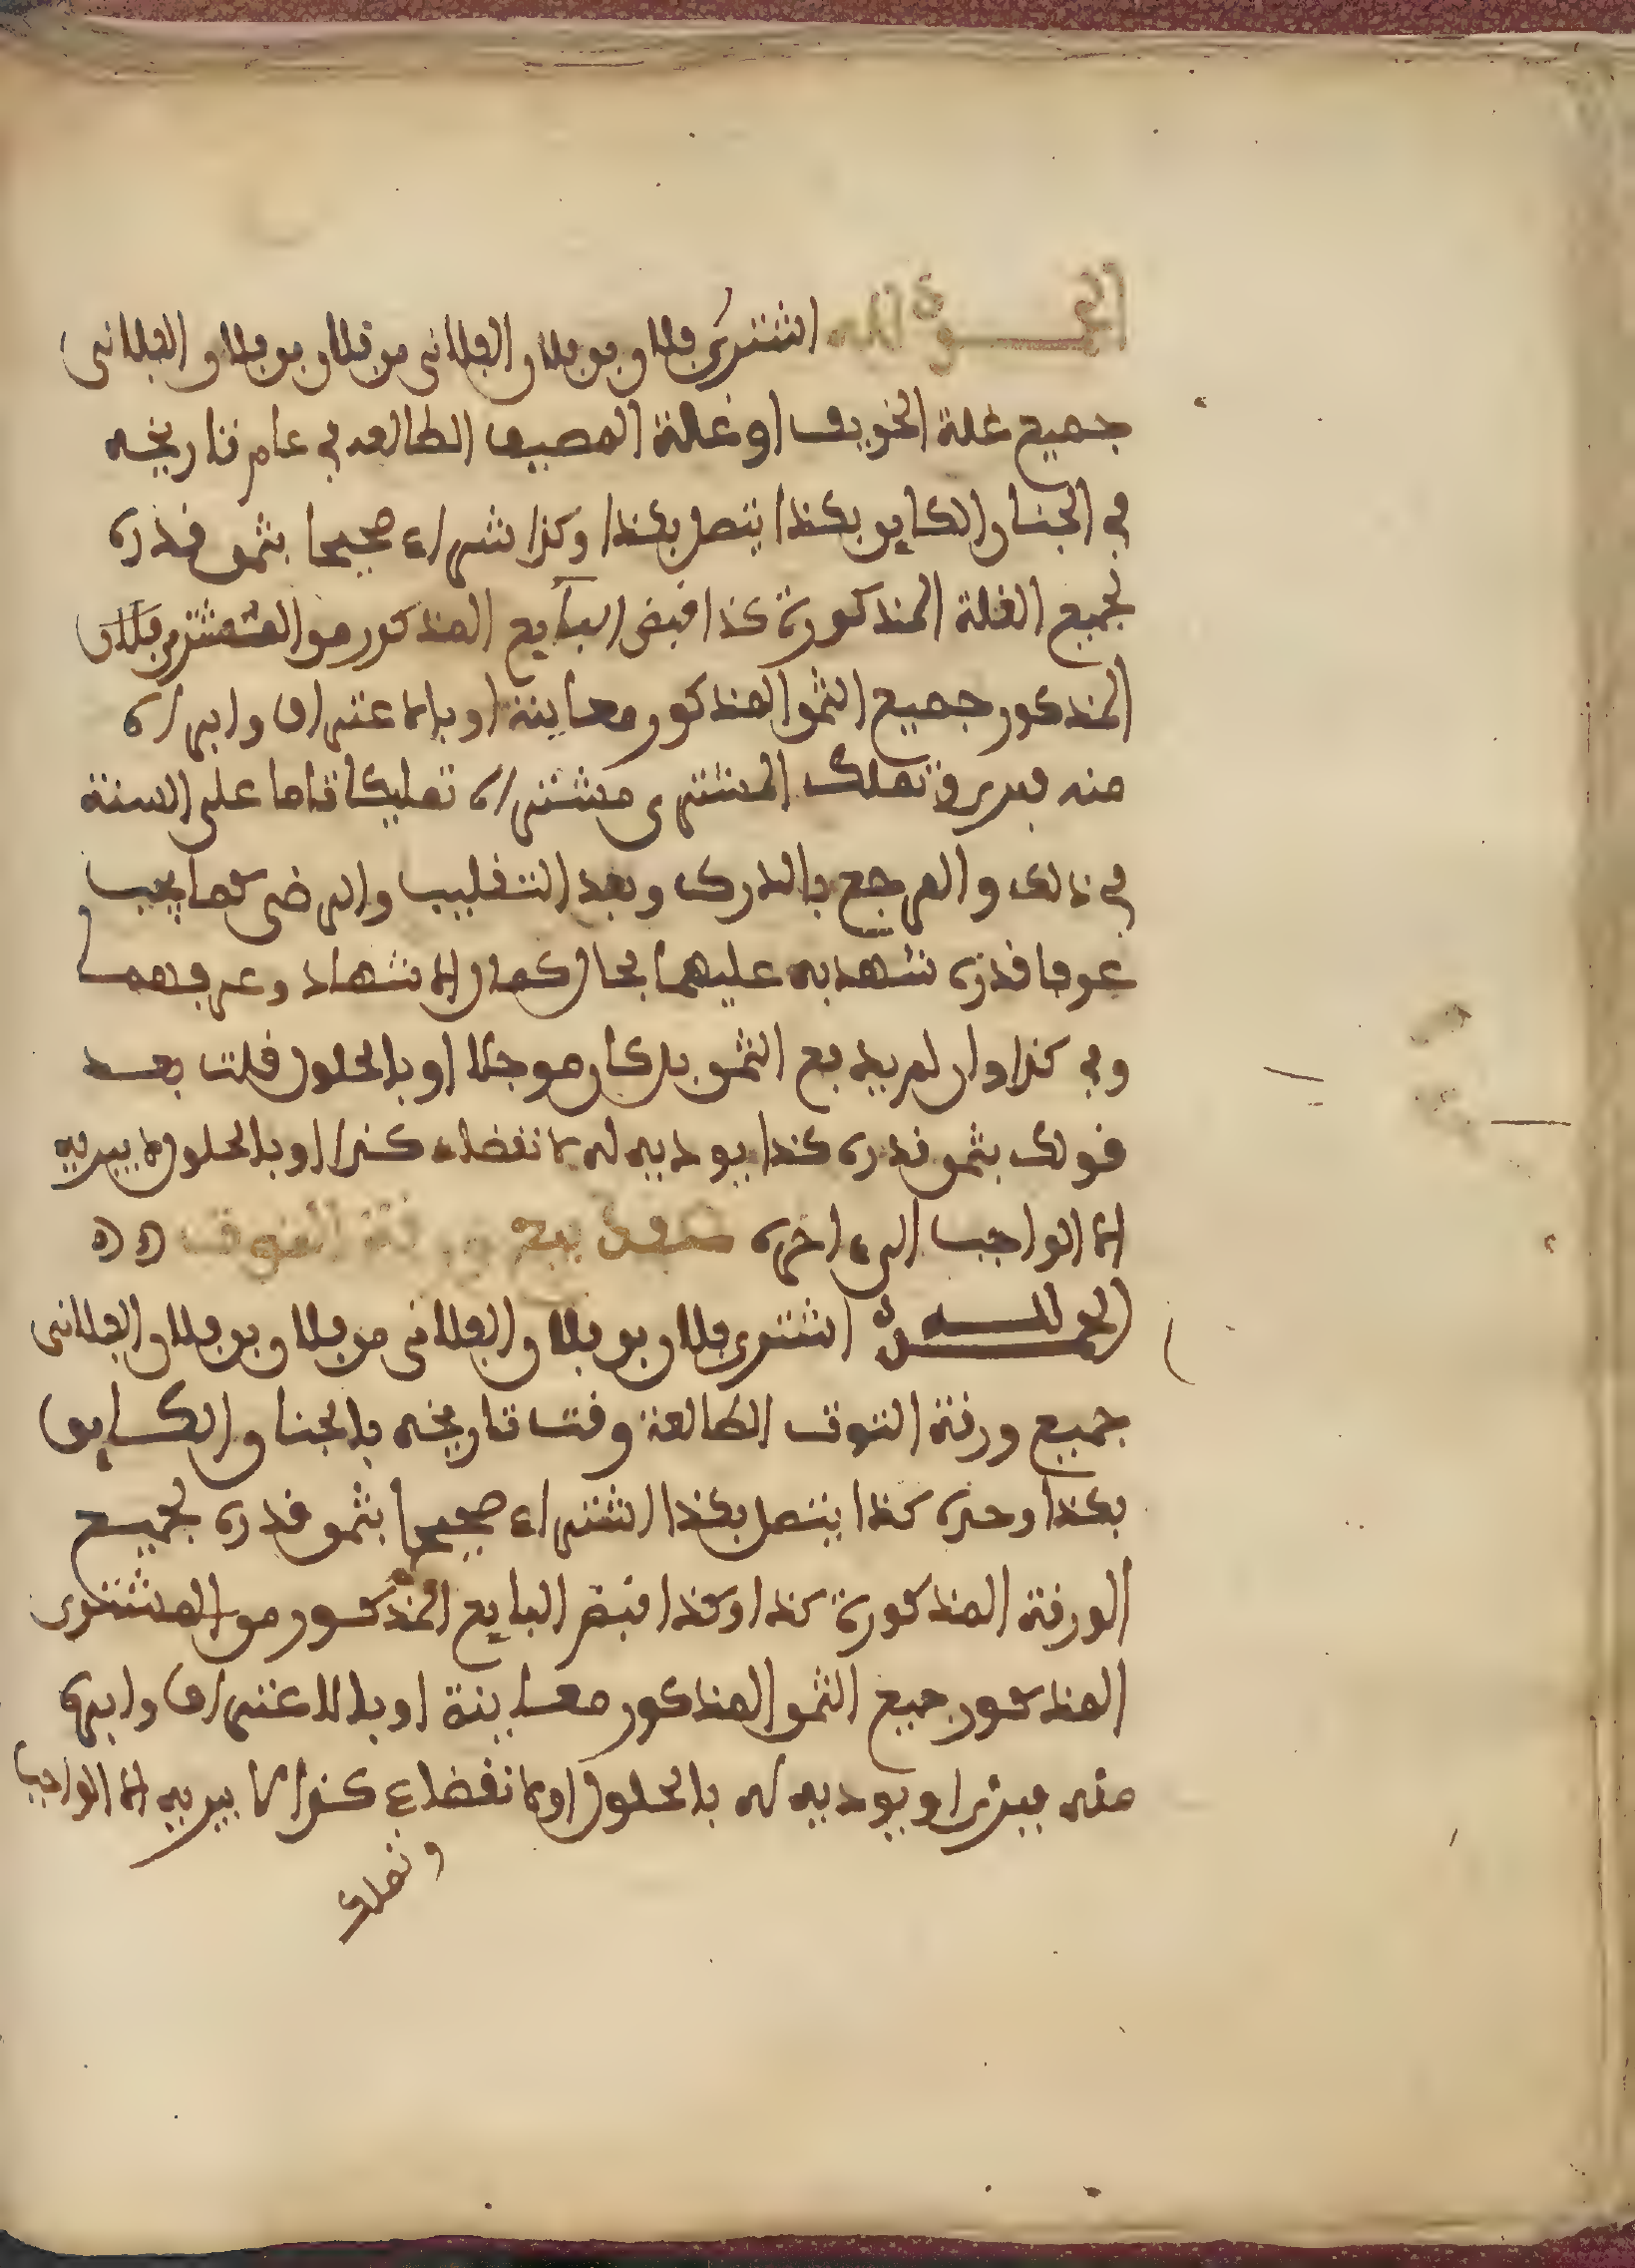 الحمد لله اشترى فلان بن فلان الفلاني من فلان بن فلان الفلاني
جميع غلة الخريف او غلة المصيف الطالعة في عام تاريخه
في الجنان الكاين بكذا يتصل بكذا وكذا شراء صحيحا بثمن قدره
لجميع الغلة المذكورة كذا قبض البايع المذكور من المشتري فلان
المذكور جميع الثمن المذكور معاينة او بالاعتراف وابراه
منه فبرى وتملك المشترى مشتراه تمليكا تاما على السنة
في ذلك والمرجع بالدرك وبعد التقليب والرضى كما يجب
عرفا قدره شهد به عليهما بحال كمال الاشهاد وعرفهما
وفي كذا وان لم يدفع الثمن بل كان موجلا او بالحلول قلت بعد
قولك بثمن قدره كذا يوديه له لانقضاء كذا او بالحلول لا يبريه
الا الواجب الى اخره عقد بيع ورقة التوت
الحمد لله اشترى فلان بن فلان الفلاني من فلان بن فلان الفلاني
جميع ورقة التوت الطالعة وقت تاريخه بالجنان الكاين
بكذا وحده كذا يتصل بكذا اشتراء صحيحا بثمن قدره لجميع
الورقة المذكورة كذا وكذا قبض البايع المذكور من المشترى
المذكور جميع الثمن المذكور معاينة او بالاعتراف وابراه
منه فبرى او يوديه له بالحلول او لانقضاء كذا لا يبريه الا الواجب
وتملك